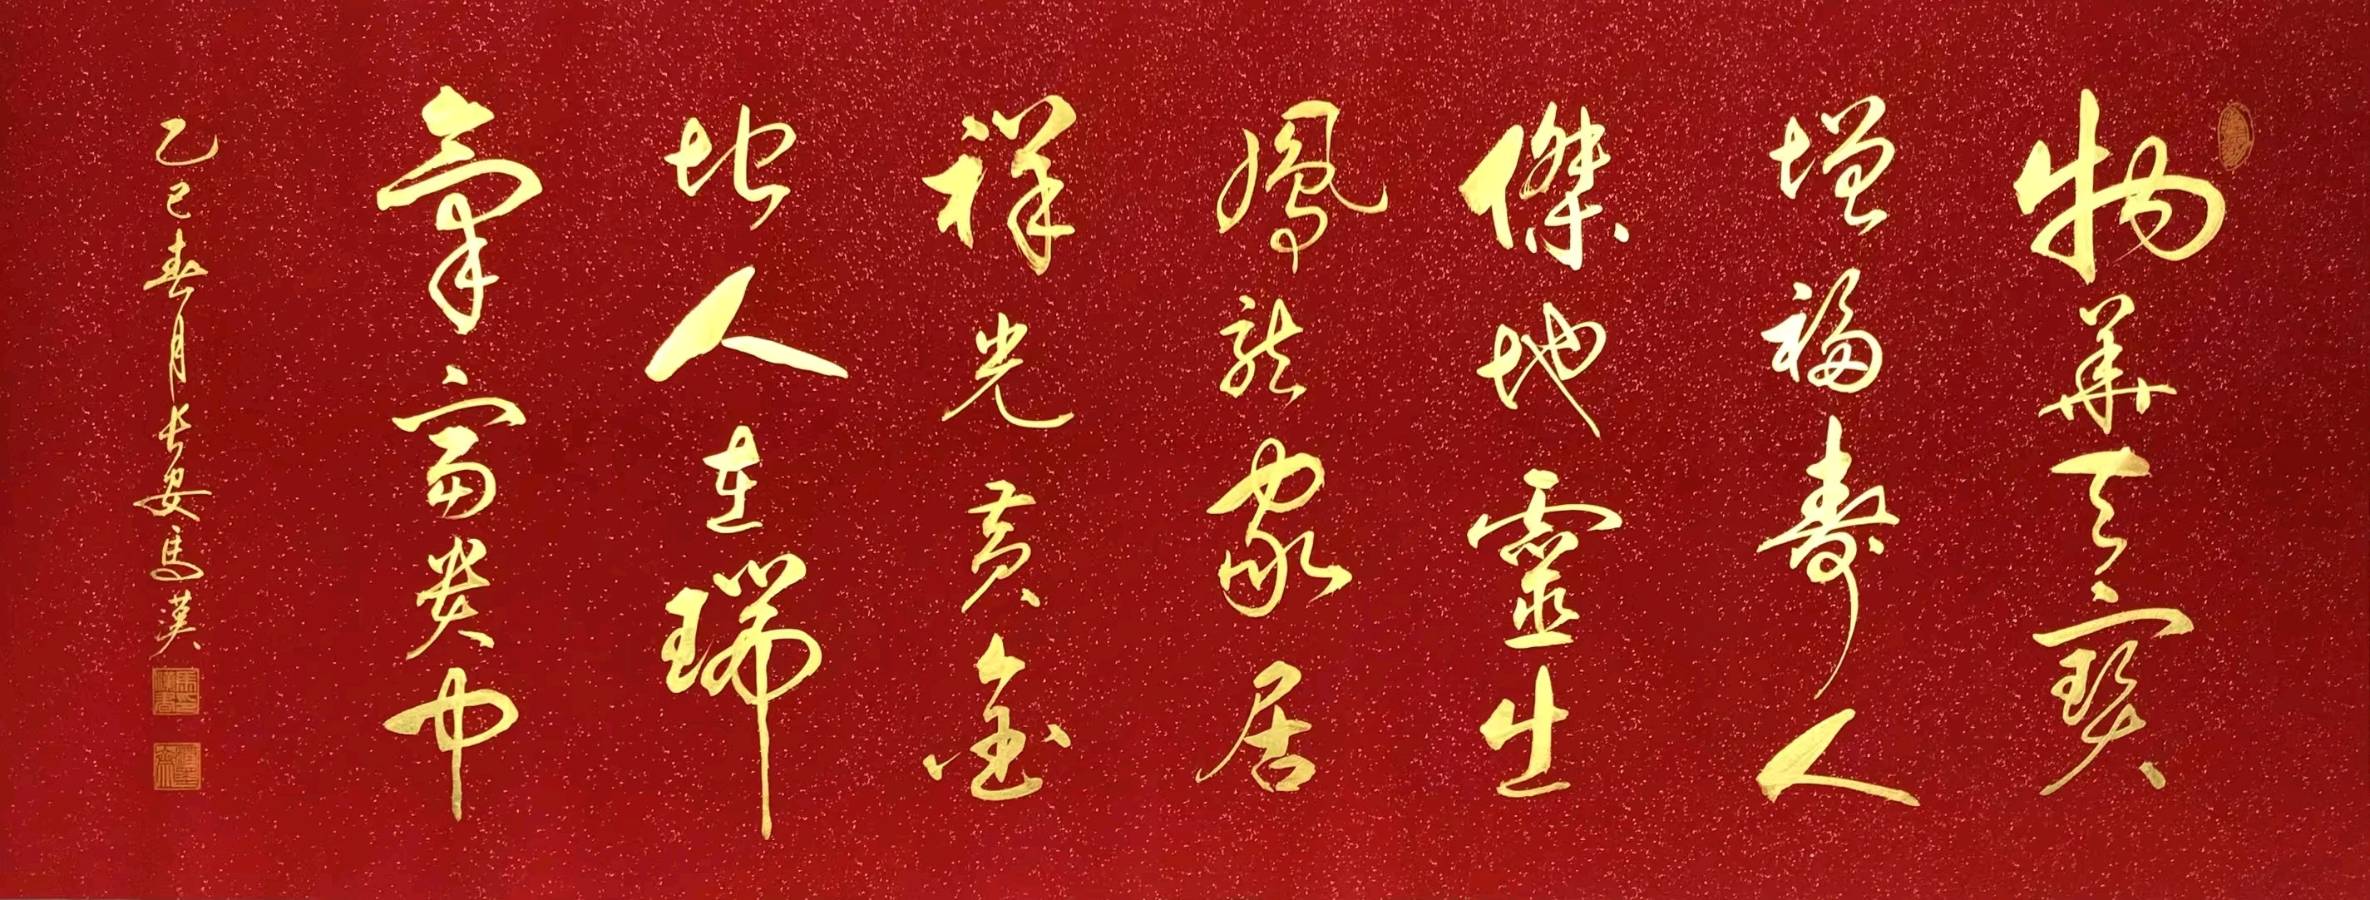 物華天寶
增福壽人
傑地靈生
鳳龍家居
祥光黄金
地人在瑞
氣富貴中
乙巳春月长安馬漢